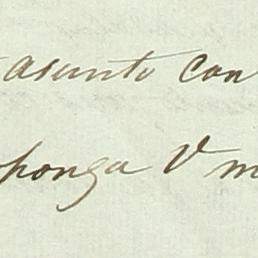 asunto con
ponga V m